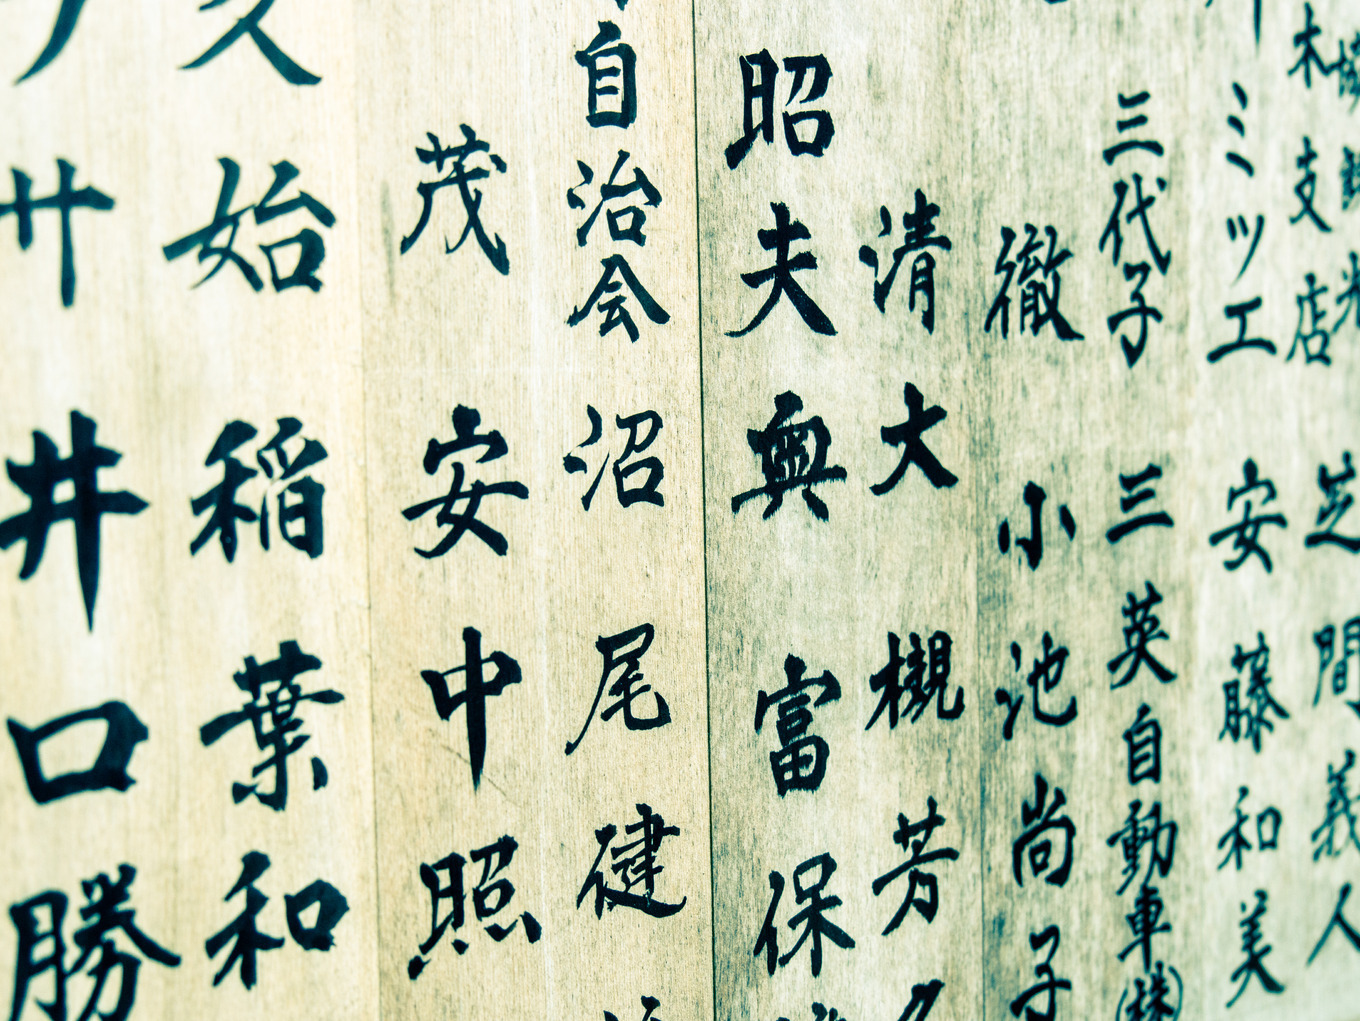 三代子 三英自動車㈱
ミツエ 安藤和美
木支店 芝間義人
徹 小池尚子
清 大槻芳
昭夫 奥富保
自治会 沼尾健
茂 安中照
久 始 稲葉和
サ 井口勝